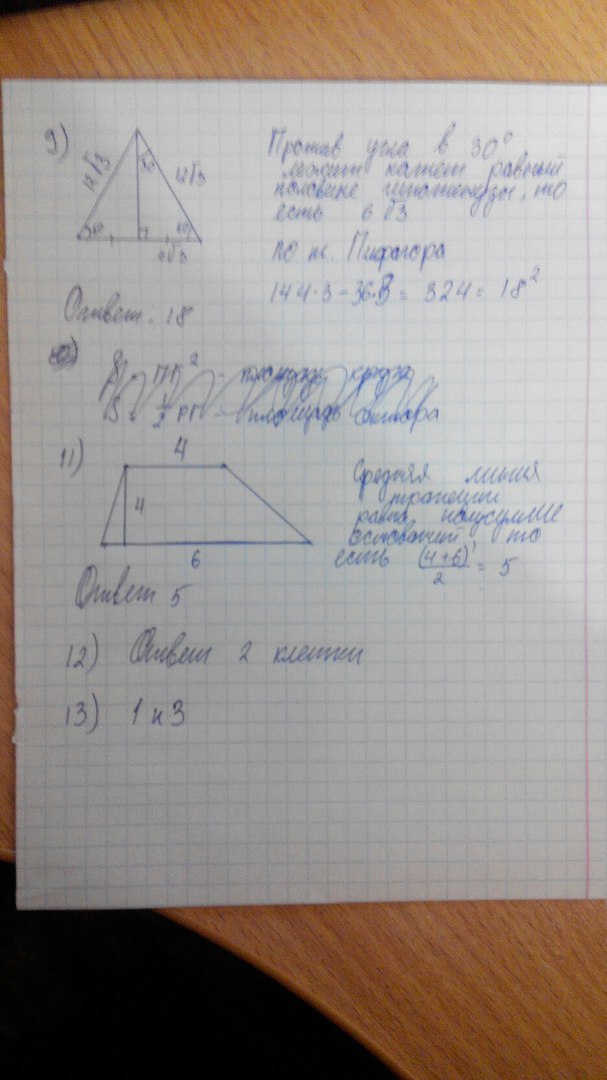 9)
12√3
12√3
30
60
60
6√3
Против угла в 30°
лежит катет равный
половине гипотенузы, то
есть 6√3
по т. Пифагора
144·3 - 36·3 = 324 = 18²
Ответ. 18
S = πr² - площадь круга
площадь сектора
11)
4
4
6
Средняя линия
трапеции
равна полусумме
оснований, то
есть (4+6)/2 = 5
Ответ 5
12) Ответ 2 клетки
13) 1 и 3